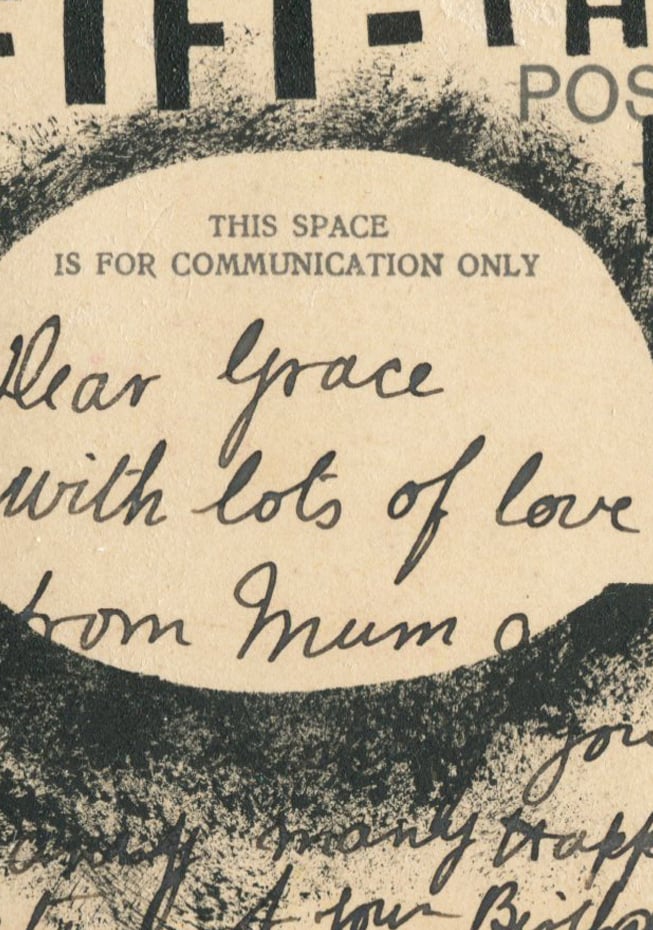 POS
THIS SPACE
IS FOR COMMUNICATION ONLY
Dear Grace
with lots of love
from Mum a
you
many Happ
your Birthd